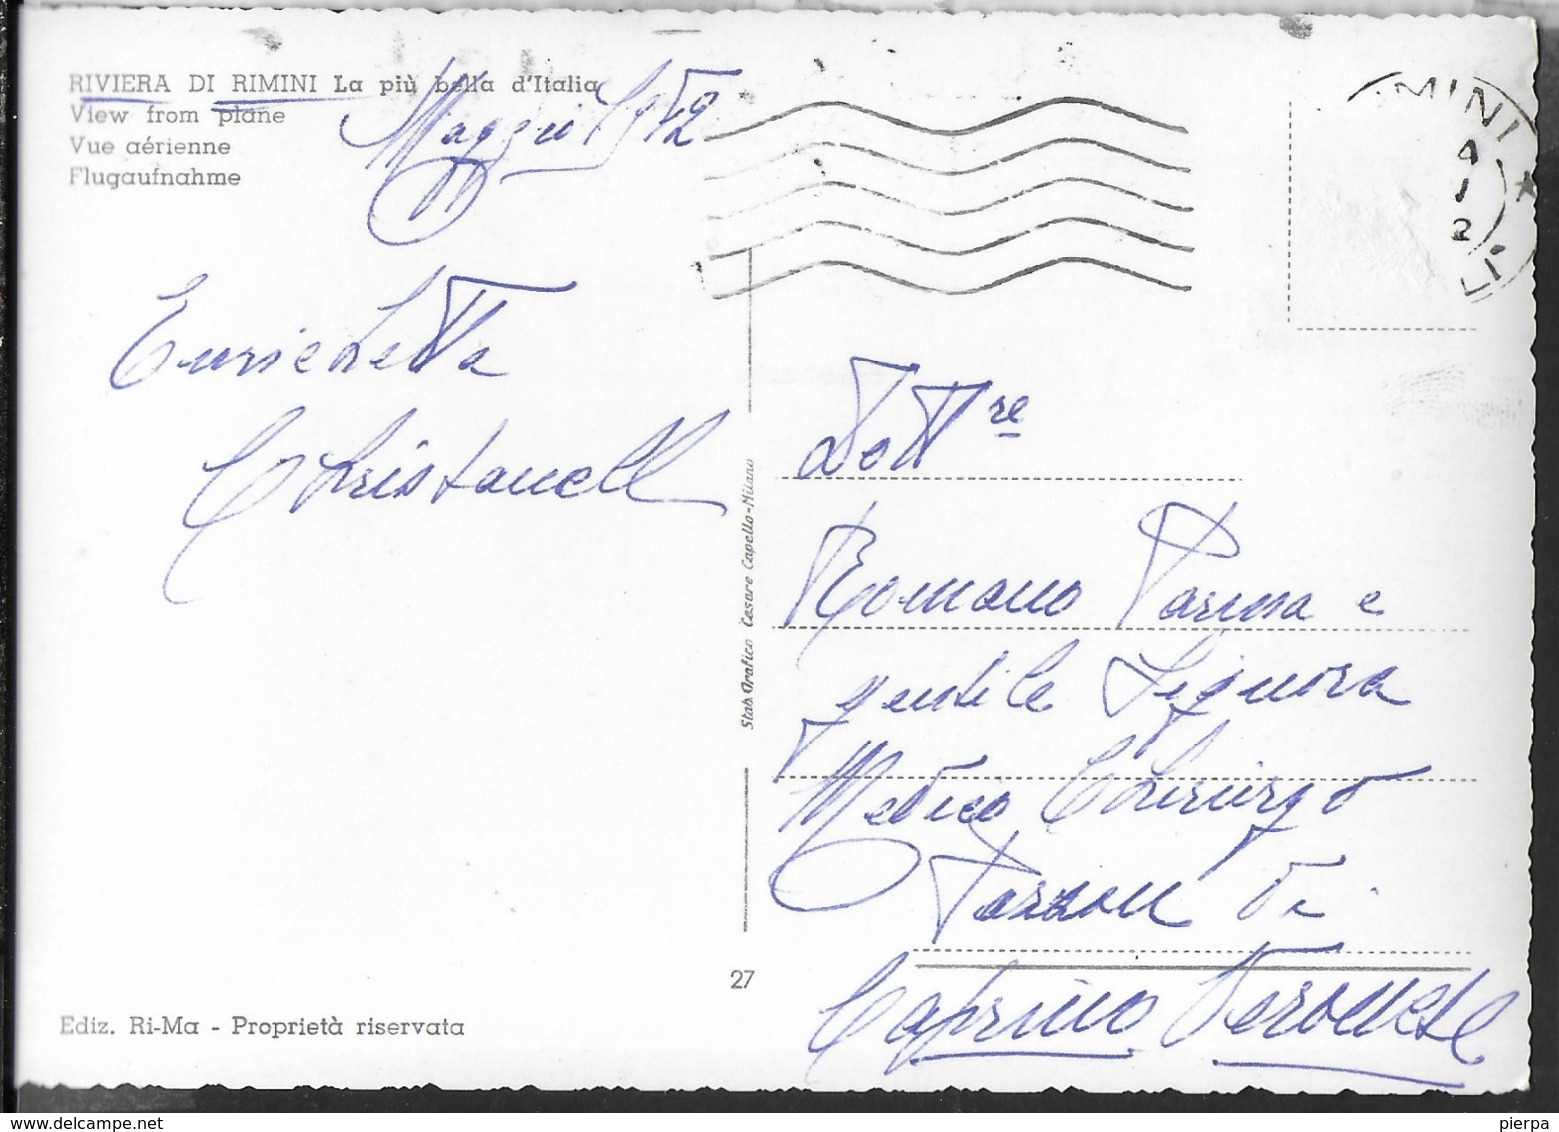 RIVIERA DI RIMINI La più bella d'Italia
View from plane
Vue aérienne
Flugaufnahme
Maggio 1952
Enrichetta
Christanell
MINI
Dott.re
Romano Parma e
gentile Signora
Medico Chirurgo
di
Caprino Veronese
Stab Grafico Cesare Capello-Milano
27
Ediz. Ri-Ma - Proprietà riservata
pierpa